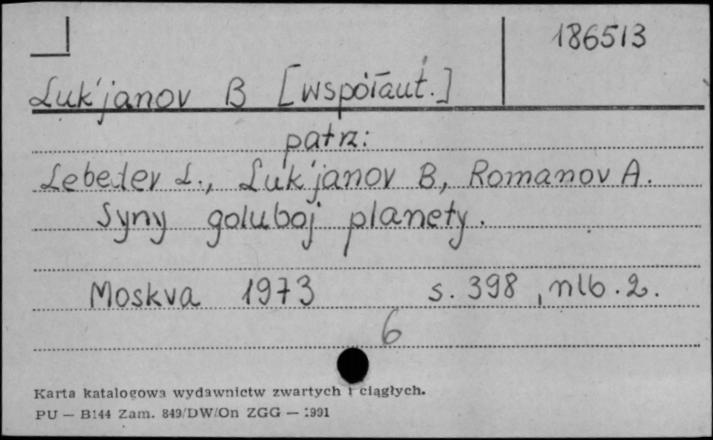 186513
Luk'janov B [współaut.]
patrz:
Lebedev L., Luk'janov B, Romanov A.
Syny goluboj planety.
Moskva 1973 s. 398, nlb. 2.
6
Karta katalogowa wydawnictw zwartych i ciągłych.
PU — B144 Zam. 849/DW/On ZGG — 1991